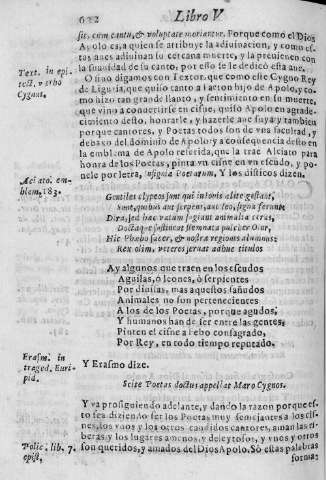 622 Libro V.
sit, cum cantu, & voluptate moriantur. Porque como el Dios
Apolo es, a quien se atribuye la adiuinacion, y como es-
tas aues adiuinan su cercana muerte, y la preuienen con
la suauidad de su canto, por esso se le dedicò esta aue.
Text. in epi-
tect. verbo
Cygnus.
O sino digamos con Textor, que como este Cygno Rey
de Liguria, que quiso tanto a Faeton hijo de Apolo, y to-
mo hizo tan grande llanto, y sentimiento en su muerte,
que vino a conuertirse en cisne, quiso Apolo en agrade-
cimiento desto, honrarle, y hazerle aue suya y tambien
por que cantores, y Poetas todos son de vna facultad, y
debaxo del dominio de Apolo; y a consequencia desto en
la emblema de Apolo referida, que la trae Alciato para
honra de los Poetas, pinta vn cisne en vn escudo, y po-
nele por letra, insignia Poetarum. Y los disticos dizen.
Alciato. em-
blem. 183.
Gentiles clypeos sunt qui in Iouis alite gestant,
Sunt, quibus aut serpens, aut leo, signa ferunt;
Dira, sed hæc vatum fugiant animalia ceras,
Doctaque sustineat stemmata pulcher Olor,
Hic Phœbo sacer, & nostræ regionis alumnus:
Rex olim, veteres seruat adhuc titulos
Ay algunos que traen en los escudos
Aguilas, ò leones, ò serpientes
Por diuisas, mas aquellos sañudos
Animales no son pertenecientes
A los de los Poetas, porque agudos,
Y humanos han de ser entre las gentes;
Pinten el cisne a Febo consagrado,
Por Rey, en todo tiempo reputado.
Erasm. in
traged. Euri-
pid.
Y Erasmo dize.
Scite Poetas doctus appellat Maro Cygnos.
Y va prosiguiendo adelante, y dando la razon porque es-
to sea diziendo ser los Poetas muy semejantes a los cis-
nes, los vnos y los otros candidos cantores, aman las ri-
beras y los lugares amenos, y deleytosos, y vnos y otros
Polic. lib. 7.
epist.
son queridos, y amados del Dios Apolo. Sò estas palabras
formas